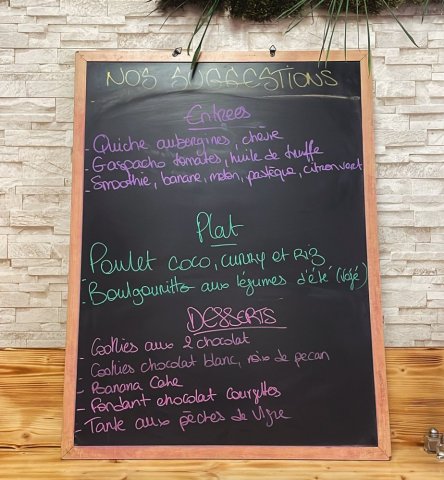 NOS SUGGESTIONS
Entrées
- Quiche aubergines, chèvre
- Gaspacho tomates, huile de truffe
- Smoothie, banane, melon, pastèque, citron vert
Plat
- Poulet coco, curry et Riz
- Boulgourittto aux légumes d'été (végé)
DESSERTS
- Cookies aux 2 chocolat
- Cookies chocolat blanc, noix de pecan
- Banana Cake
- Fondant chocolat courgettes
- Tarte aux pêches de vigne